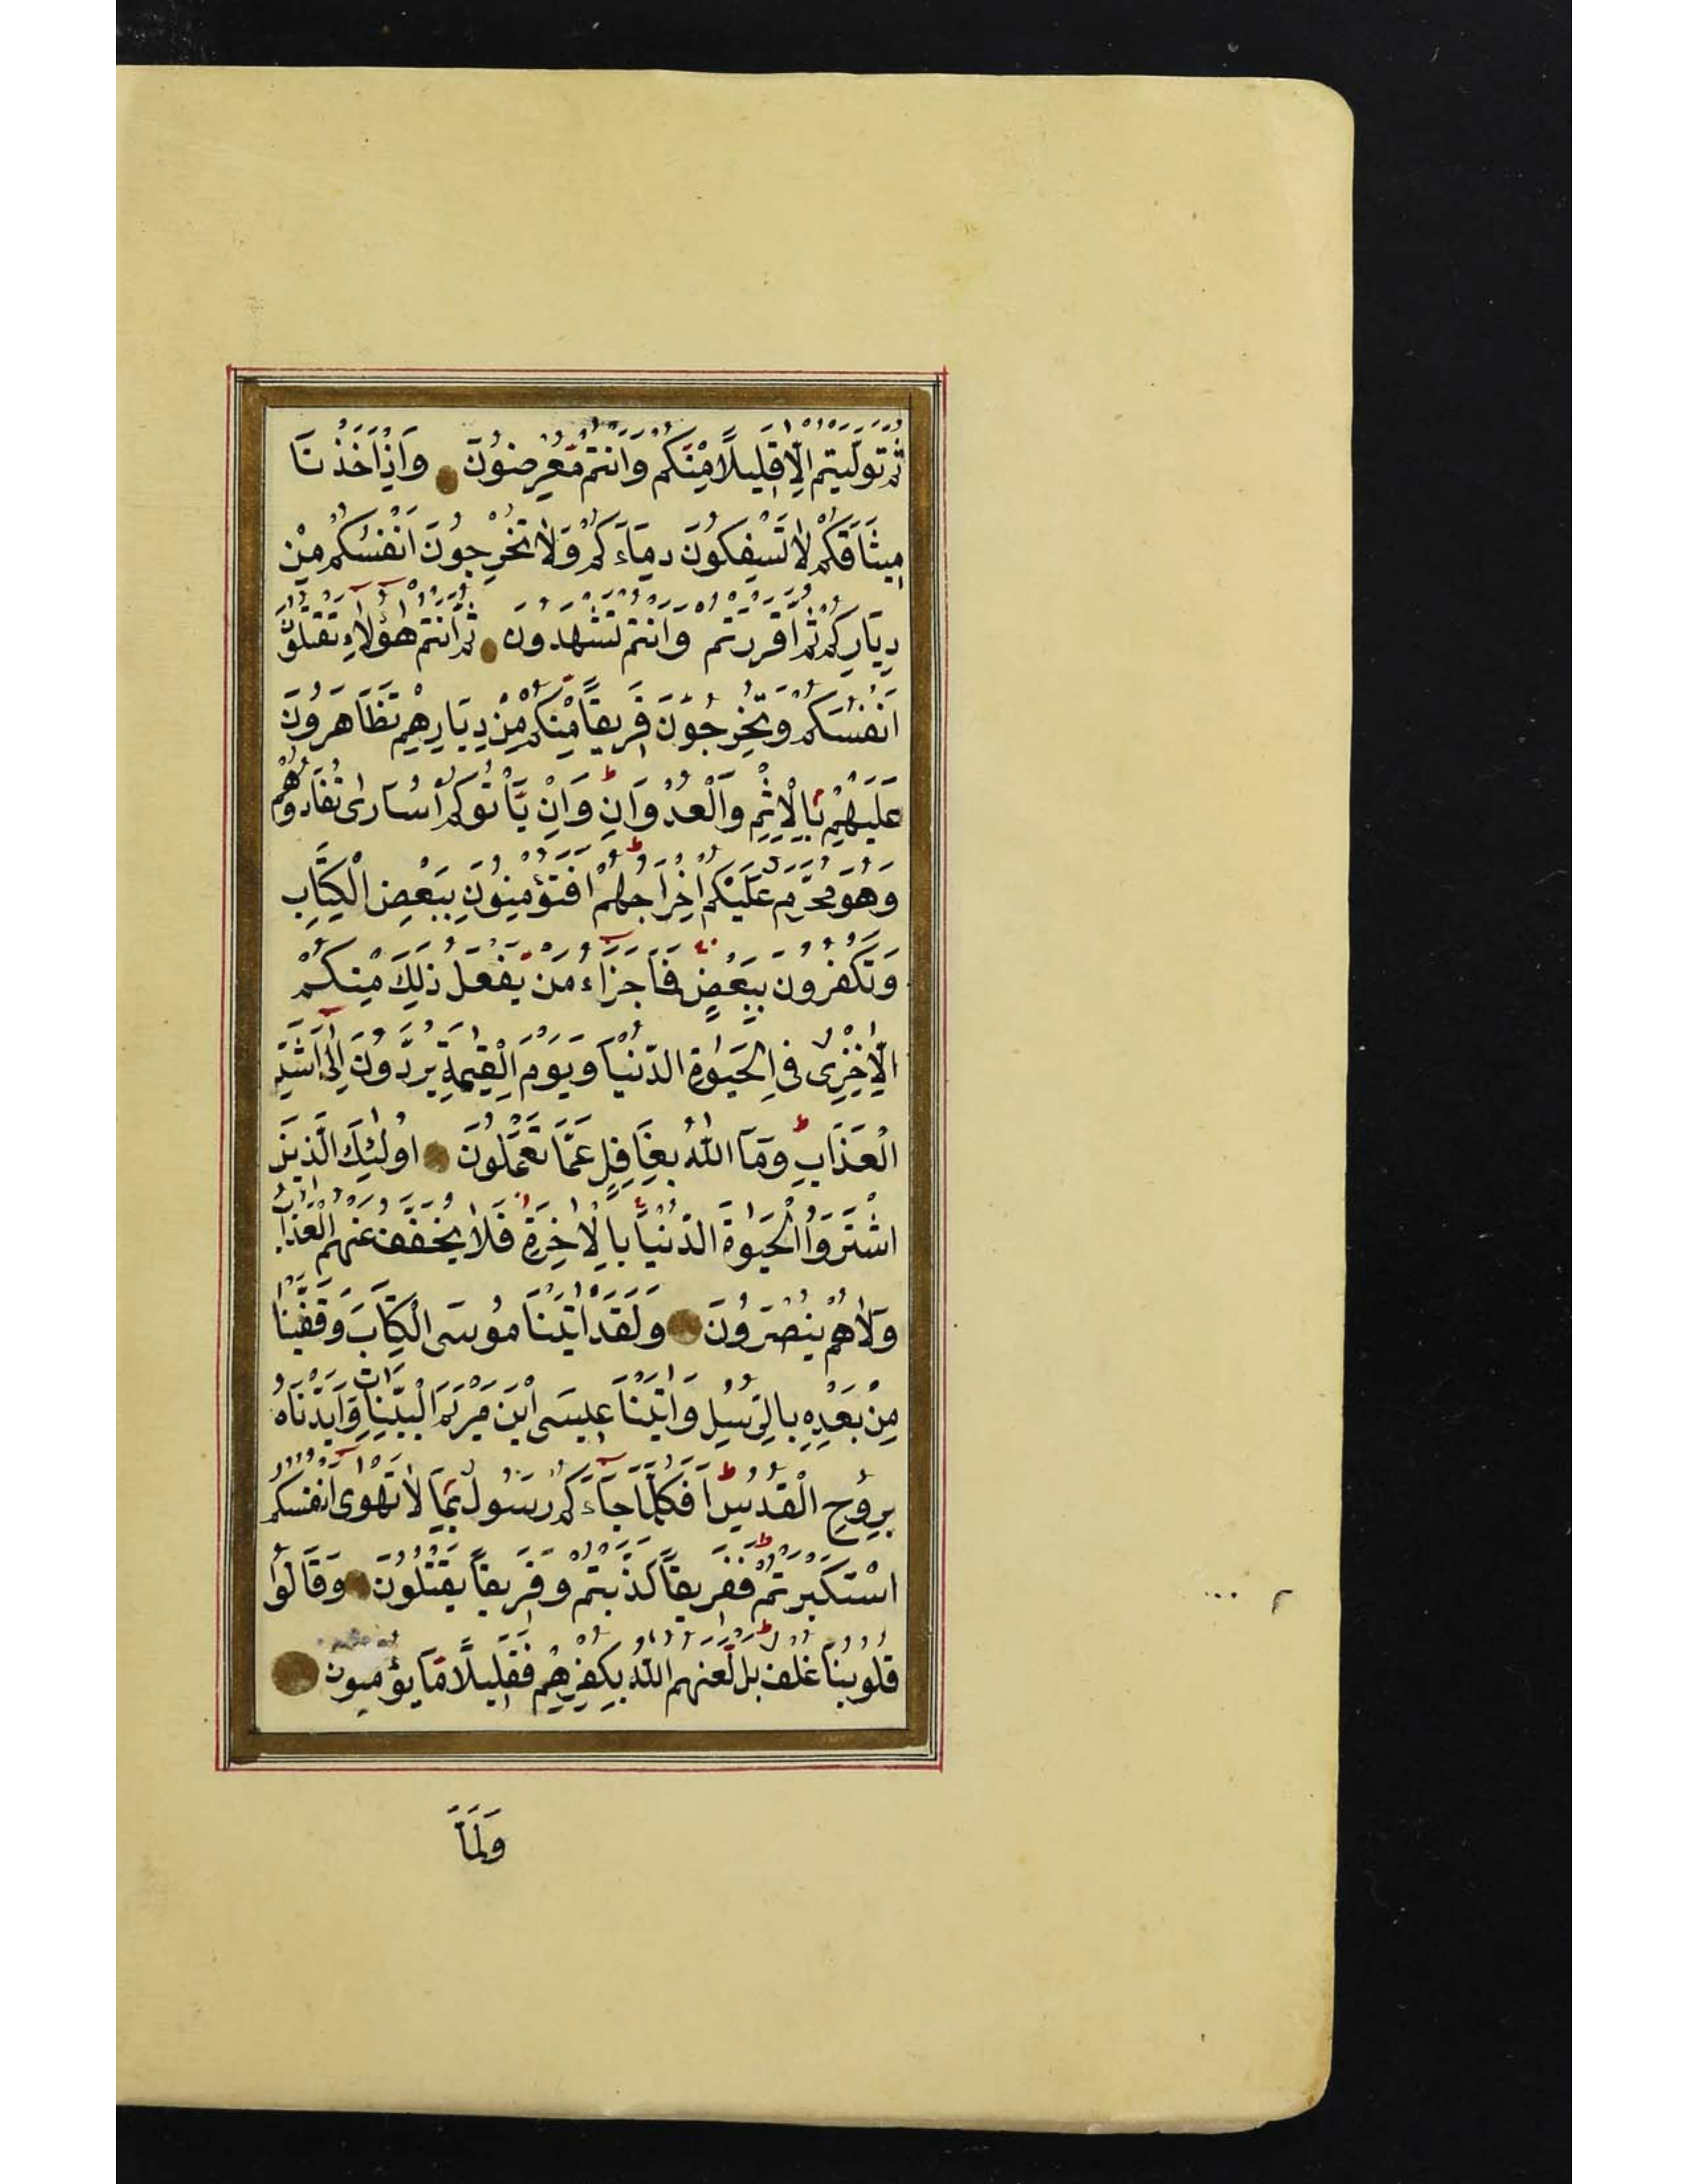 ثُمَّ تَوَلَّيْتُمْ اِلَّا قَلِيلًا مِنْكُمْ وَاَنْتُمْ مُعْرِضُونَ وَاِذْ اَخَذْنَا
مِيثَاقَكُمْ لَا تَسْفِكُونَ دِمَاءَكُمْ وَلَا تُخْرِجُونَ اَنْفُسَكُمْ مِنْ
دِيَارِكُمْ ثُمَّ اَقْرَرْتُمْ وَاَنْتُمْ تَشْهَدُونَ ثُمَّ اَنْتُمْ هٰؤُلَاءِ تَقْتُلُونَ
اَنْفُسَكُمْ وَتُخْرِجُونَ فَرِيقًا مِنْكُمْ مِنْ دِيَارِهِمْ تَظَاهَرُونَ
عَلَيْهِمْ بِالْاِثْمِ وَالْعُدْوَانِ ط وَاِنْ يَأْتُوكُمْ اُسَارٰى تُفَادُوهُمْ
وَهُوَ مُحَرَّمٌ عَلَيْكُمْ اِخْرَاجُهُمْ ط اَفَتُؤْمِنُونَ بِبَعْضِ الْكِتَابِ
وَتَكْفُرُونَ بِبَعْضٍ فَمَا جَزَاءُ مَنْ يَفْعَلُ ذٰلِكَ مِنْكُمْ
اِلَّا خِزْىٌ فِى الْحَيٰوةِ الدُّنْيَا وَيَوْمَ الْقِيٰمَةِ يُرَدُّونَ اِلٰى اَشَدِّ
الْعَذَابِ ط وَمَا اللّٰهُ بِغَافِلٍ عَمَّا تَعْمَلُونَ اُولٰئِكَ الَّذِينَ
اشْتَرَوُا الْحَيٰوةَ الدُّنْيَا بِالْاٰخِرَةِ فَلَا يُخَفَّفُ عَنْهُمُ الْعَذَابُ
وَلَا هُمْ يُنْصَرُونَ وَلَقَدْ اٰتَيْنَا مُوسَى الْكِتَابَ وَقَفَّيْنَا
مِنْ بَعْدِهِ بِالرُّسُلِ وَاٰتَيْنَا عِيسَى ابْنَ مَرْيَمَ الْبَيِّنَاتِ وَاَيَّدْنَاهُ
بِرُوحِ الْقُدُسِ ط اَفَكُلَّمَا جَاءَكُمْ رَسُولٌ بِمَا لَا تَهْوٰى اَنْفُسُكُمُ
اسْتَكْبَرْتُمْ ط فَفَرِيقًا كَذَّبْتُمْ وَفَرِيقًا تَقْتُلُونَ وَقَالُوا
قُلُوبُنَا غُلْفٌ ط بَلْ لَعَنَهُمُ اللّٰهُ بِكُفْرِهِمْ فَقَلِيلًا مَا يُؤْمِنُونَ
وَلَمَّا